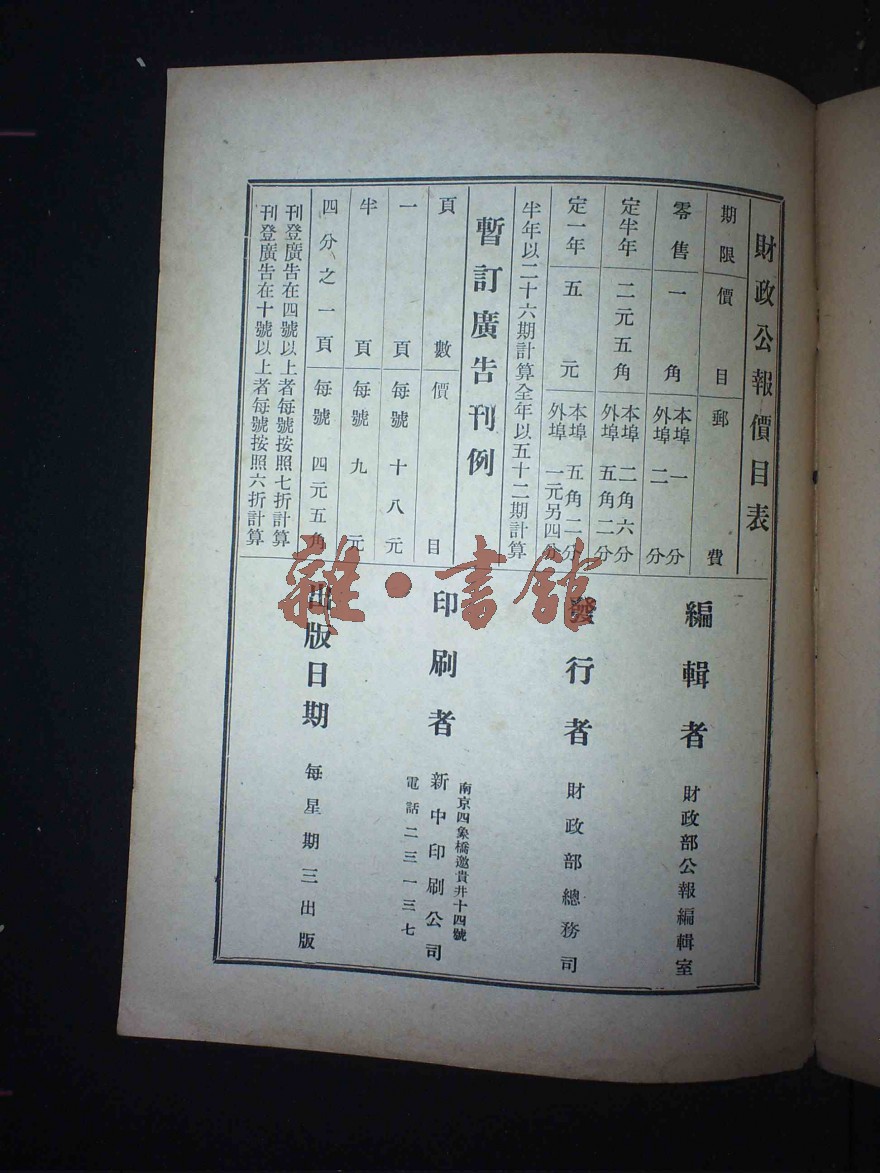 財政公報價目表
期限 價目 郵費
零售 一角 本埠 一分 外埠 二分
定半年 二元五角 本埠 二角六分 外埠 五角二分
定一年 五元 本埠 五角二分 外埠 一元另四分
半年以二十六期計算全年以五十二期計算
暫訂廣告刊例
頁數 價目
一頁 每號 十八元
半頁 每號 九元
四分之一頁 每號 四元五角
刊登廣告在四號以上者每號按照七折計算
刊登廣告在十號以上者每號按照六折計算
編輯者 財政部公報編輯室
發行者 財政部總務司
南京四象橋邀貴井十四號
印刷者 新中印刷公司
電話二三一三七
出版日期 每星期三出版
雜·書館